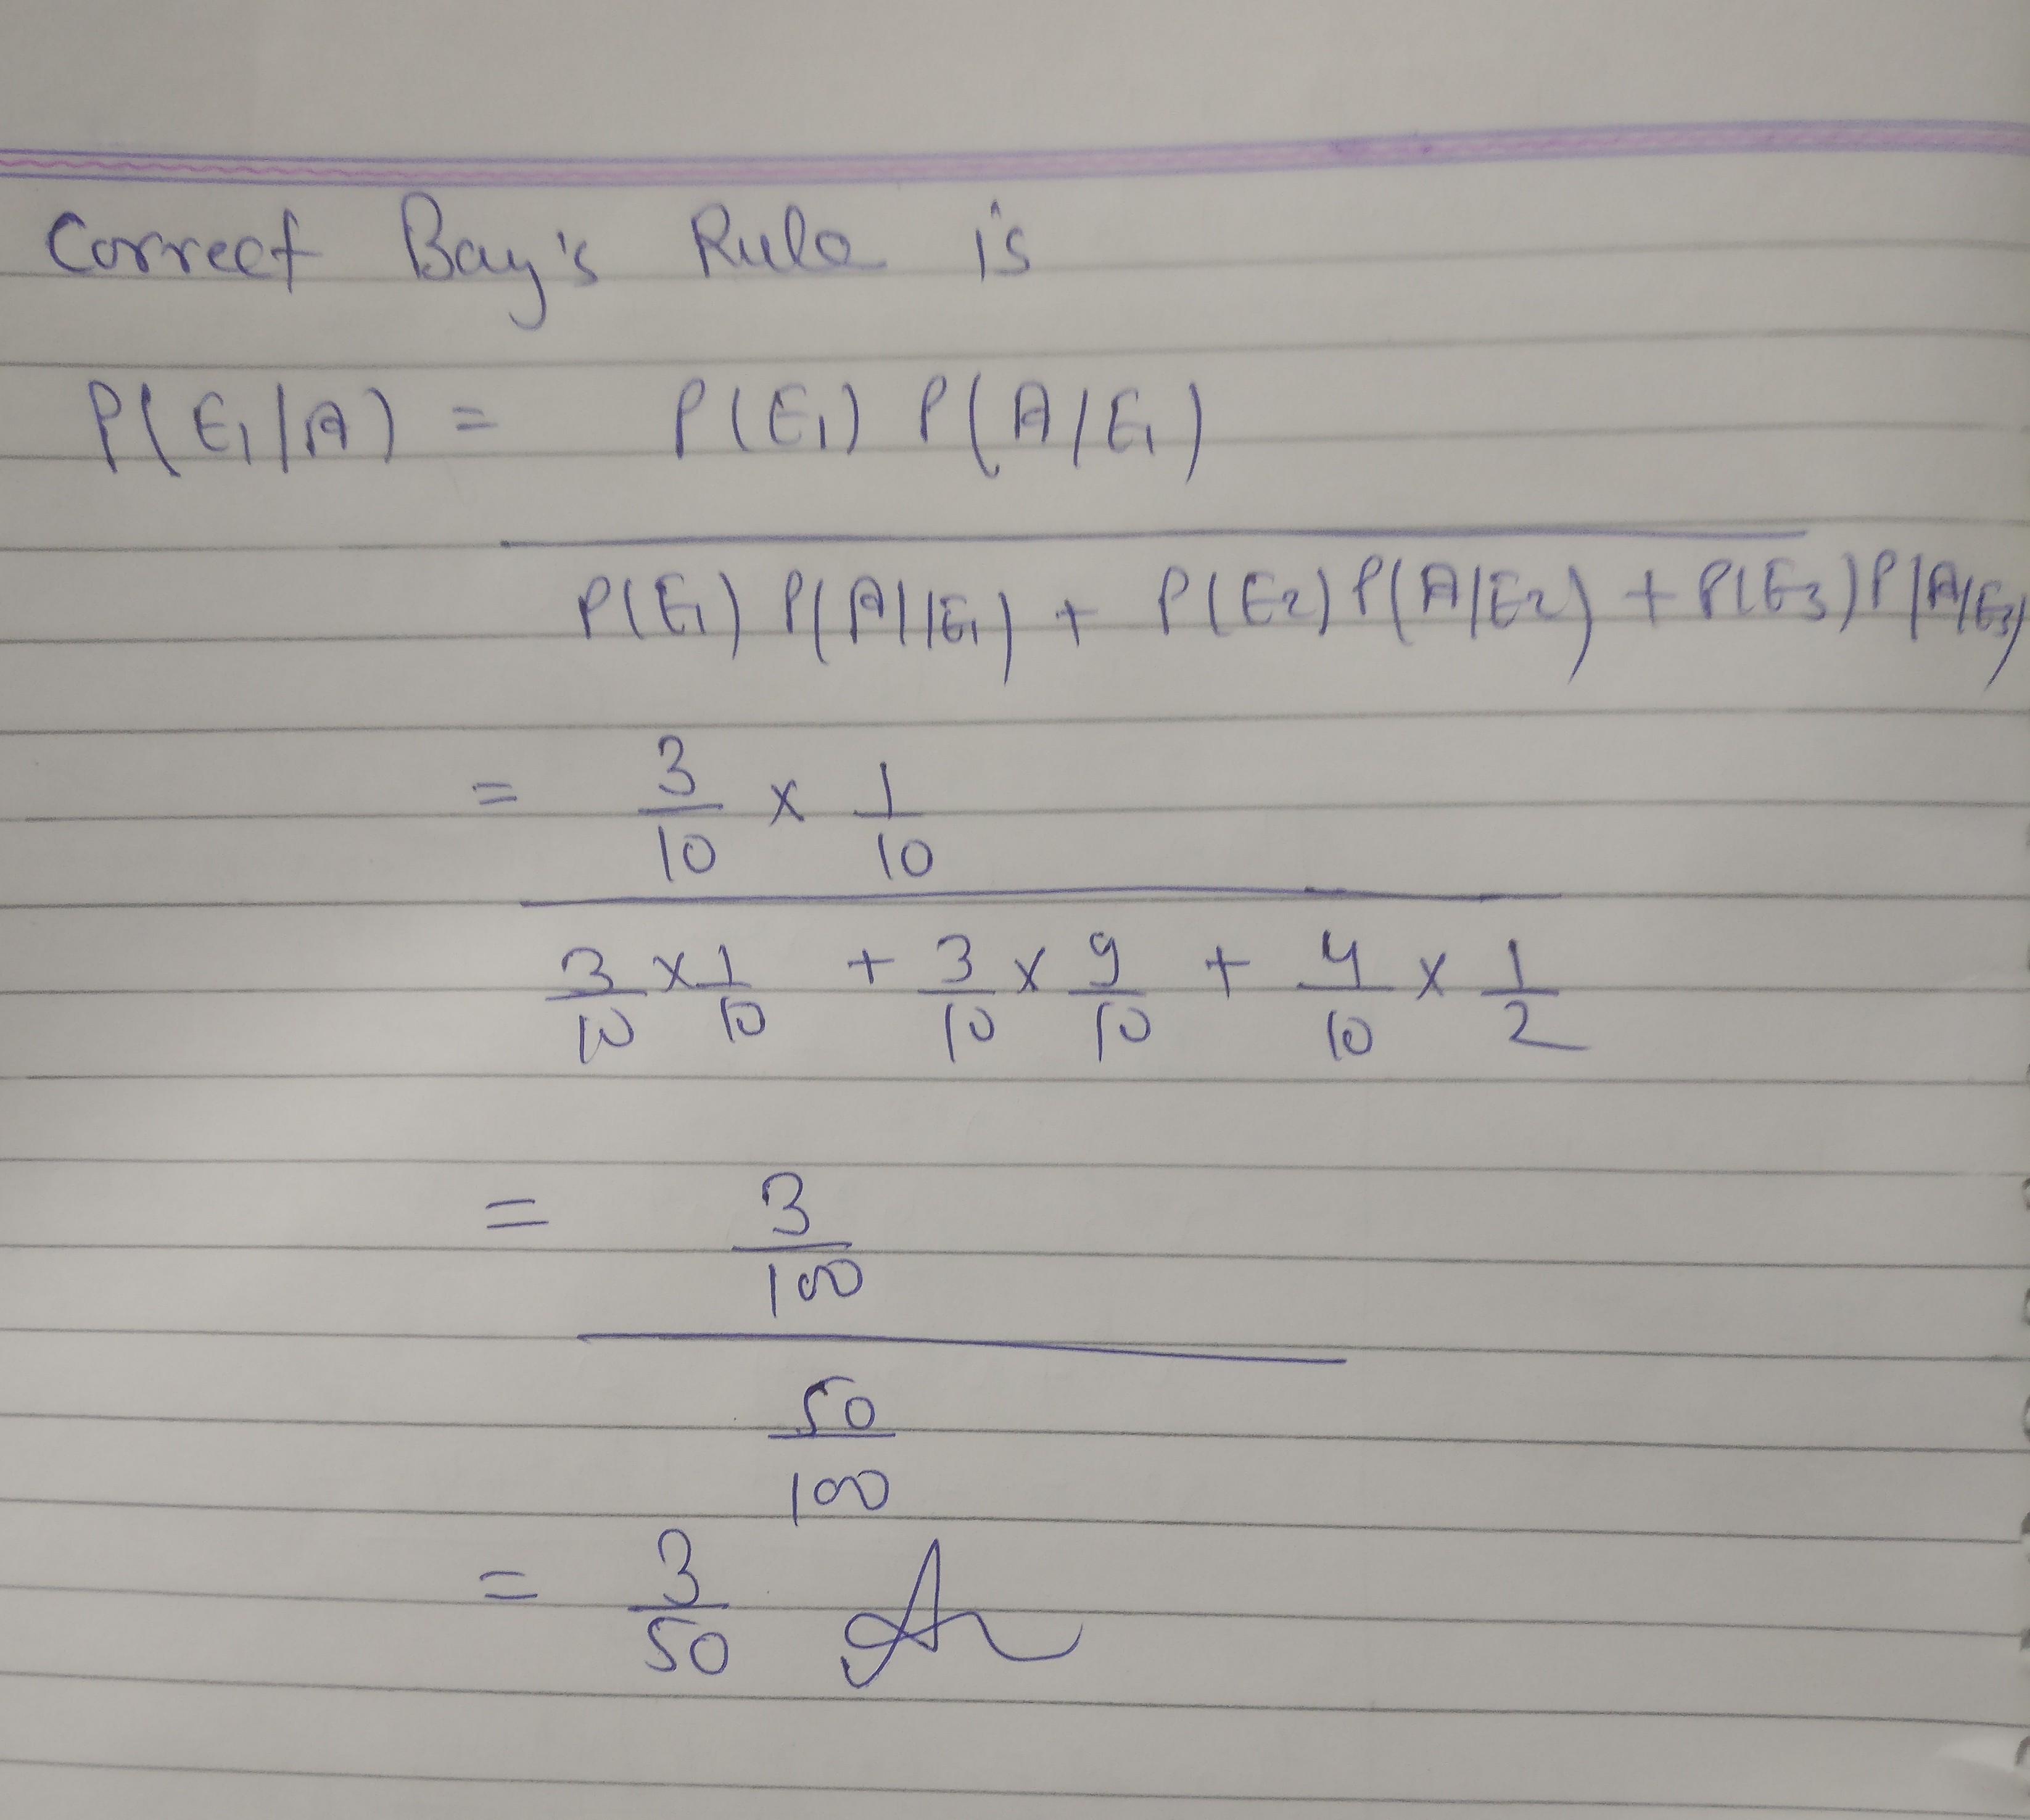 Correct Bay's Rule is
P(E1/A) = P(E1) P(A/E1)
P(E1) P(A//E1) + P(E2) P(A/E2) + P(E3) P(A/E3)
= 3/10 × 1/10
3/10 × 1/10 + 3/10 × 9/10 + 4/10 × 1/2
= 3/100
50/100
= 3/50